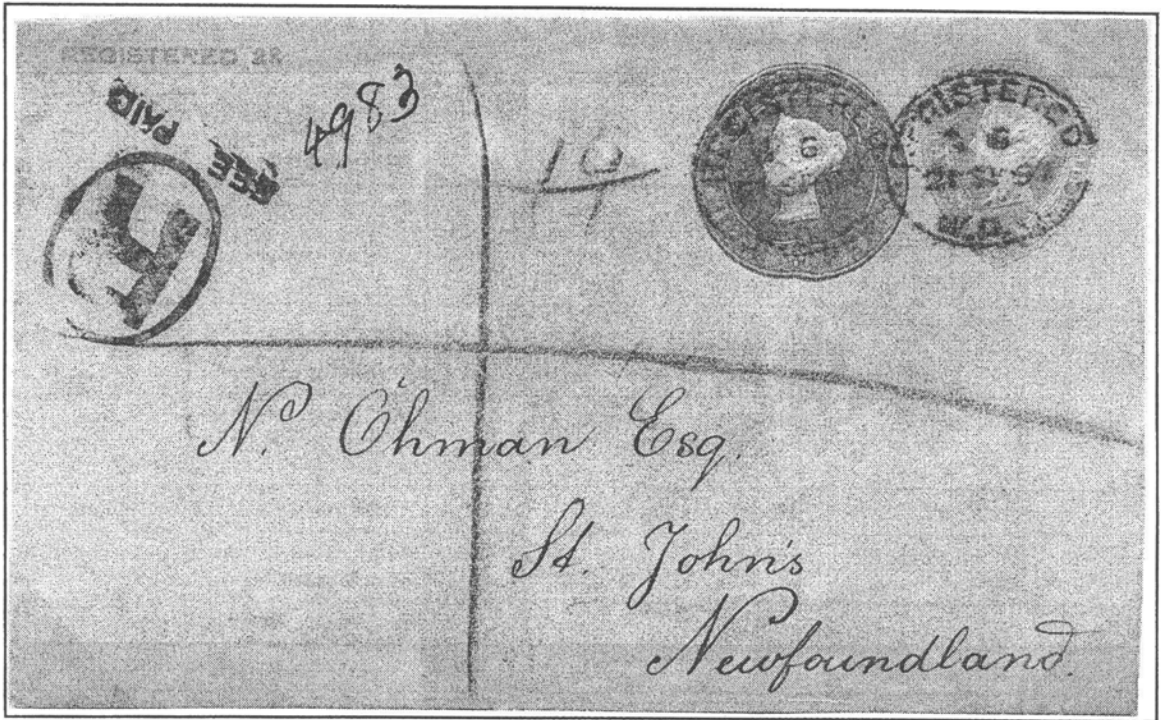 REGISTERED
FEE PAID
4983
REGISTERED
6
REGISTERED
6
N. Öhman Esq.
St. John's
Newfoundland.